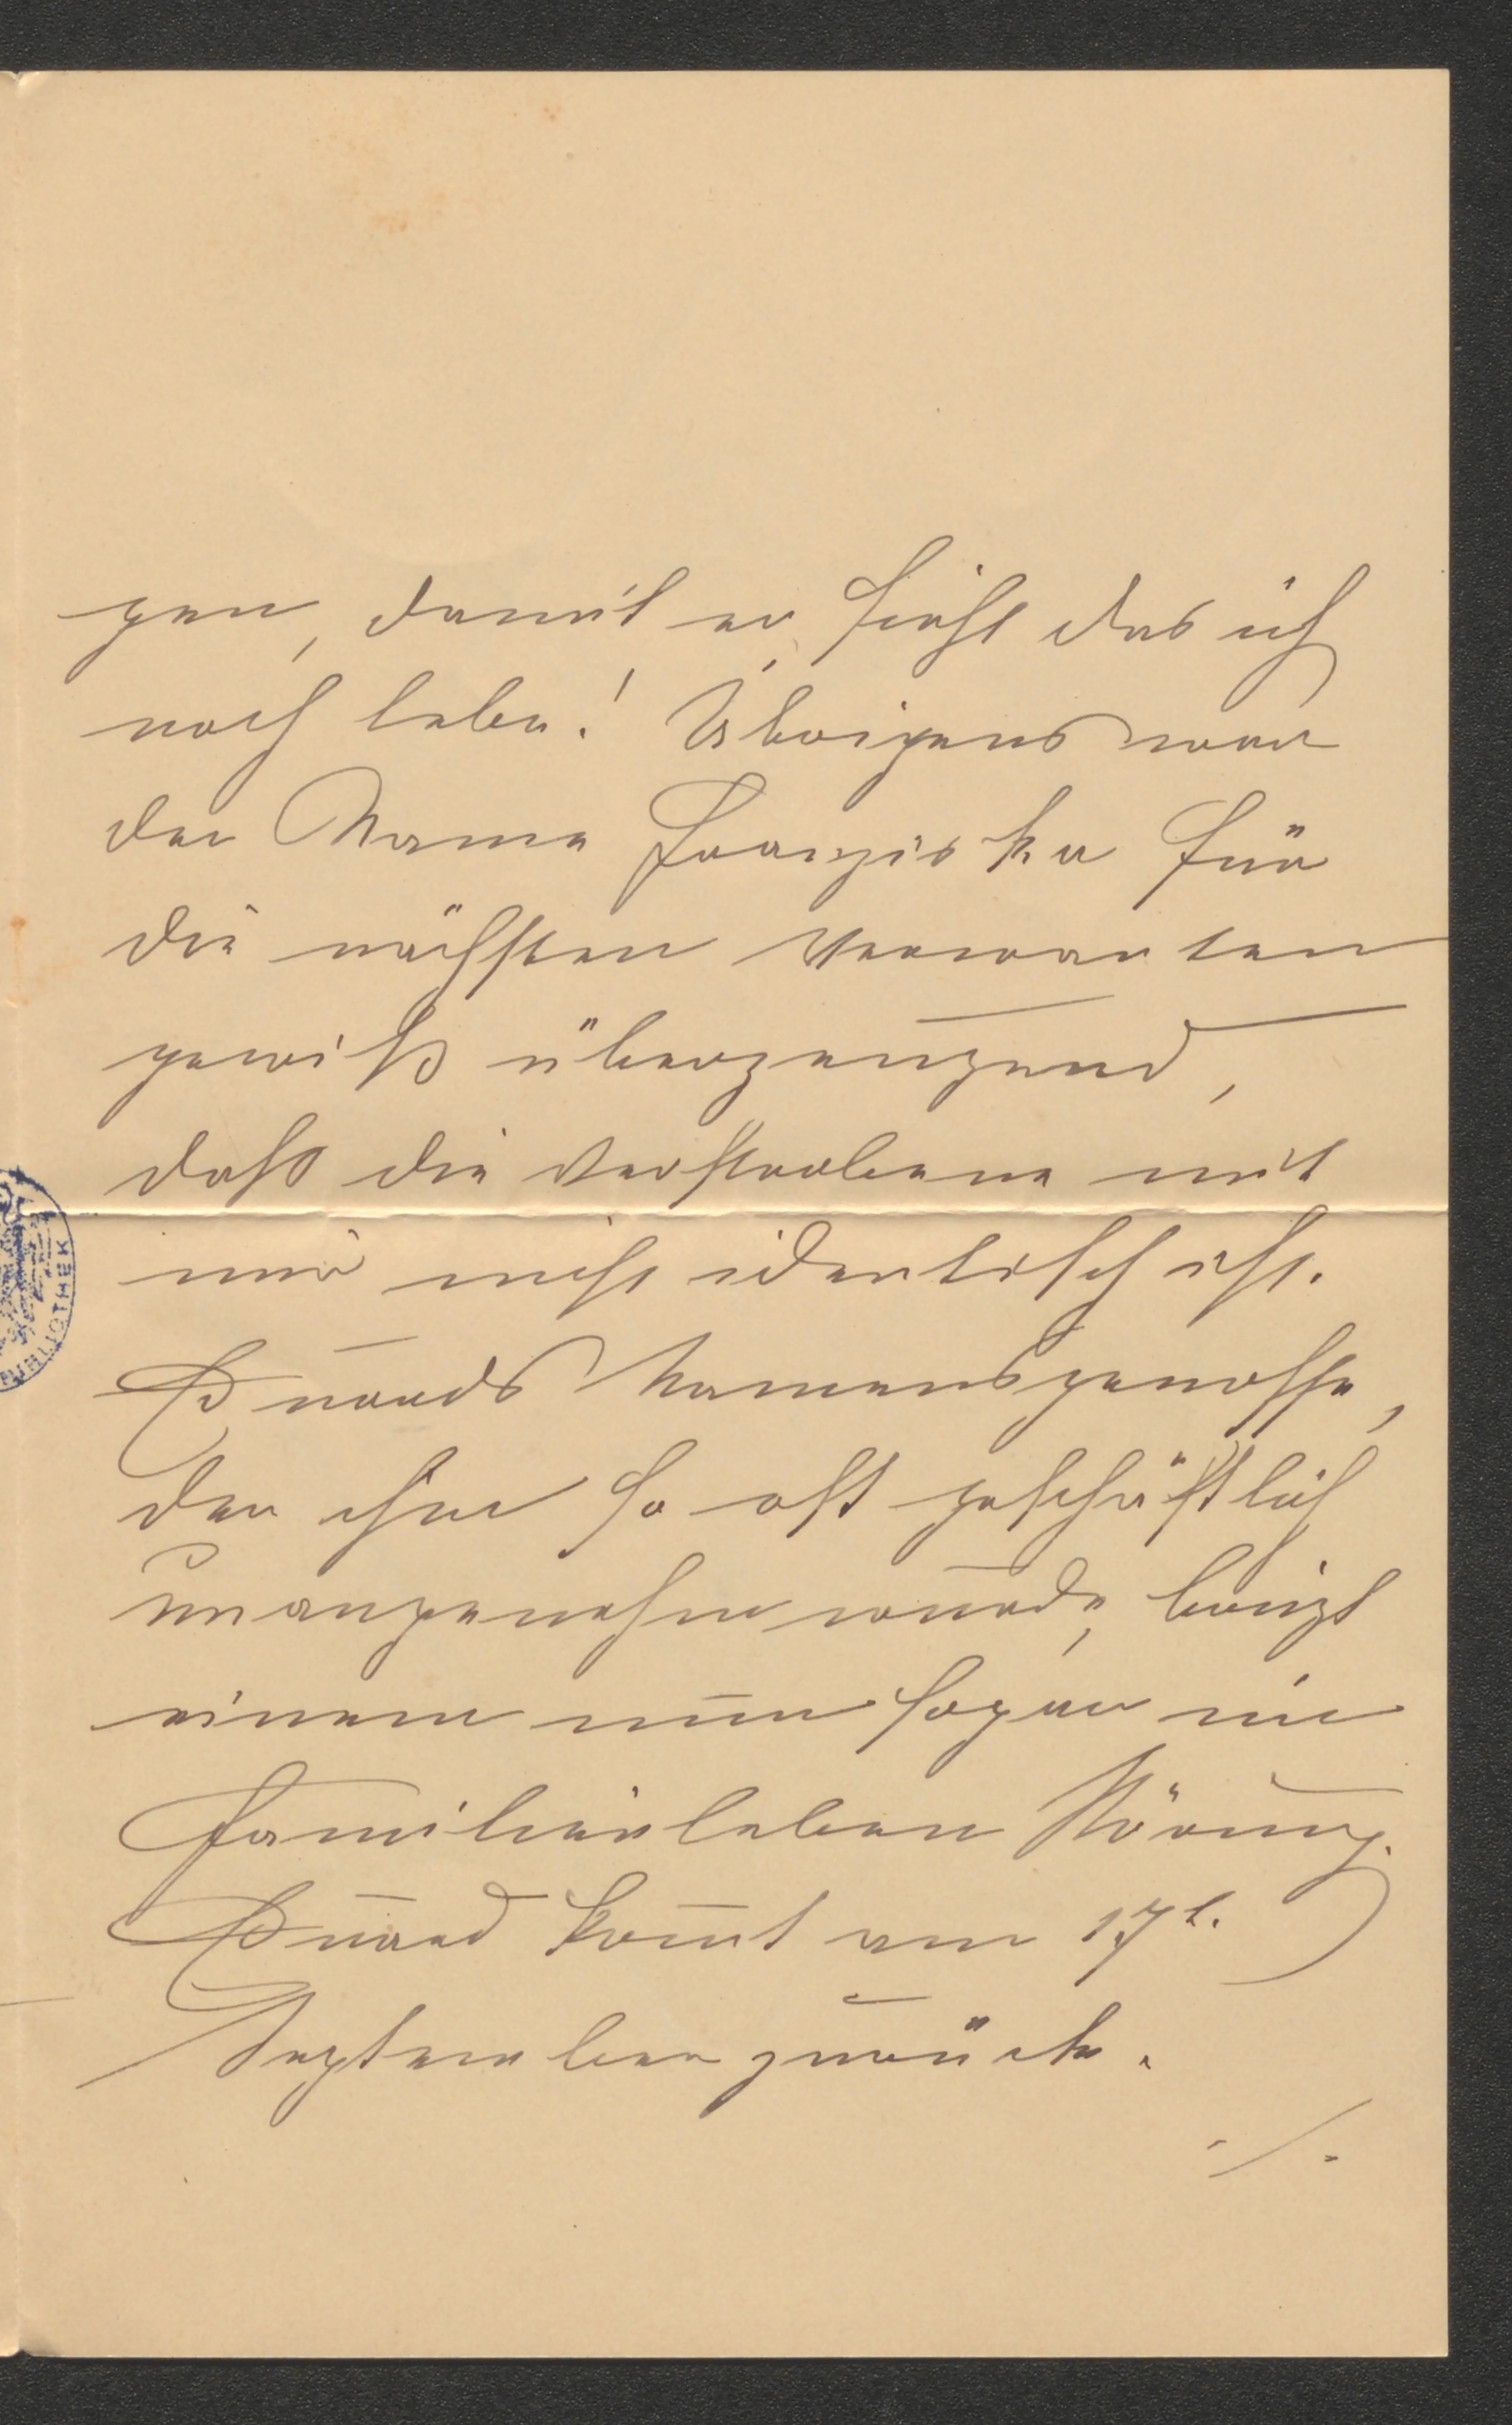 gen, damit er sieht das ich
noch lebe! Übrigens war
der Name Franziska für
die nächsten Verwanten
gewiß überzeugend,
daß die Verstorbene mit
mir nicht identisch ist.
Namensgenosse,
der ihm so oft geschäftlich
unangenehm wurde, bringt
einem nun sogar ins
Familienleben Störung.
kom̄t am 17t.
September zurück.
./.
BIBLIOTHEK